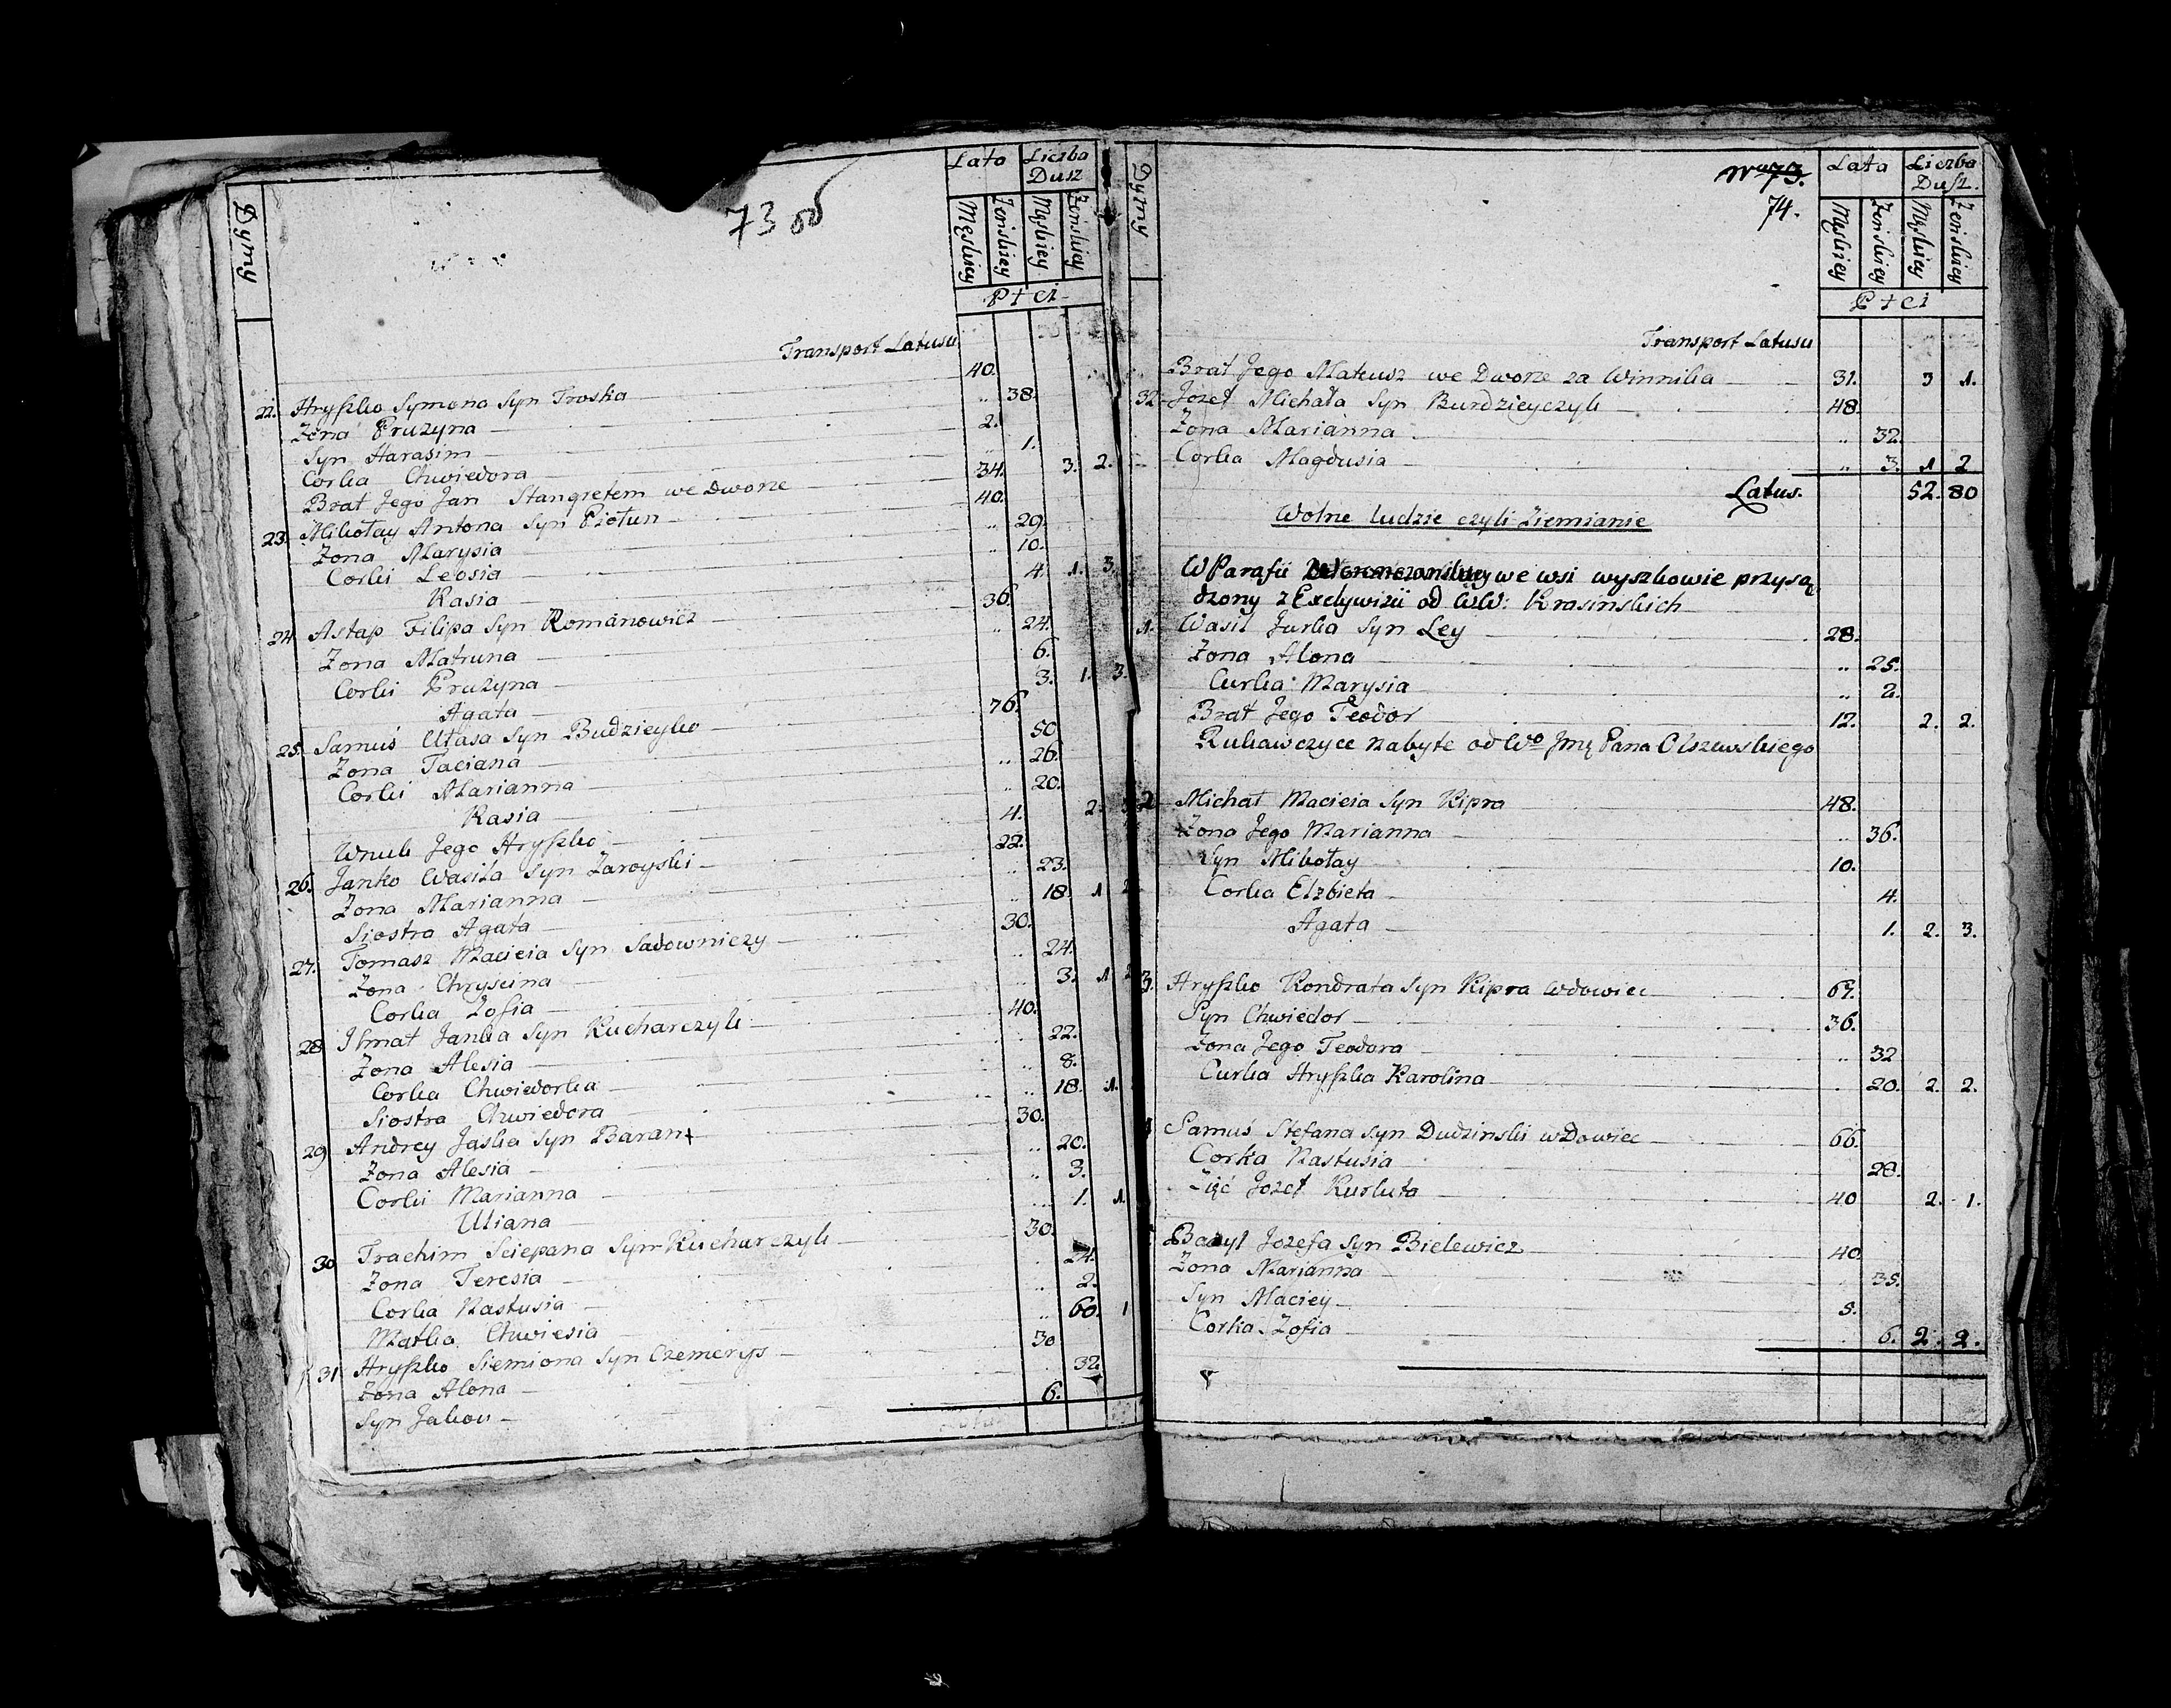 73 об
Dymy
Lata
Liczba Dusz
Męskiey
Żeńskiey
Męskiey
Żeńskiey
Płci
Transport Latusu
22. Hryszko Symona Syn Troska 40.
Żona Pruzyna 38.
Syn Harasim 2.
Corka Chwiedora 1.
Brat Jego Jan Stangretem we Dworze 34. 3. 2.
23. Mikołay Antona Syn Piołun 40.
Żona Marysia 29.
Corki Leosia 10.
Kasia 4. 1. 3.
24. Astap Filipa Syn Romanowicz 36.
Żona Matruna 24.
Corki Pruzyna 6.
Agata 3. 1. 3.
25. Samuś Ułasa Syn Budzieyko 76.
Żona Taciana 50
Corki Marianna 26.
Kasia 20.
Wnuk Jego Hryszko 4. 2.
26. Janko Wasila Syn Zaroyski 22.
Żona Marianna 23.
Siostra Agata 18. 1 2
27. Tomasz Macieia Syn Sadowniczy 30.
Żona Chryscina 24.
Corka Zofia 3. 1 2
28 Ihnat Janka Syn Kucharczyk 40.
Żona Alesia 22.
Corka Chwiedorka 8.
Siostra Chwiedora 18. 1.
29 Andrey Jaska Syn Baran 30.
Żona Alesia 20.
Corki Marianna 3.
Uliana 1. 1.
30 Trachim Sciepana Syn Kucharczyk 30.
Żona Teresia 24.
Corka Nastusia 2.
Matka Chwiesia 60. 1
31. Hryszko Siemiona Syn Czemerys 30
Żona Alona 32.
Syn Jakow 6.
Dymy
Nro 73.
74.
Lata
Liczba Dusz.
Męskiey
Żeńskiey
Męskiey
Żeńskiey
Płci
Transport Latusu
Brat Jego Mateusz we Dworze za Winnika 31. 3 1.
32 Jozef Michała Syn Burdzieyczyk 48.
Żona Marianna 32.
Corka Magdusia 3. 1 2
Latus. 52. 80
Wolne ludzie czyli Ziemianie
W Parafii we wsi wyszkowie przysą
dzony z Exdywizii od WW: Krasinskich
1. Wasil Jurka Syn Ley 28.
Żona Alona 25.
Curka Marysia 2.
Brat Jego Teodor 12. 2. 2.
Rukawczyce nabyte od Wo Jmę Pana Olszewskiego
2 Michał Macieia Syn Kipra 48.
Żona Jego Marianna 36.
Syn Mikołay 10.
Corka Elzbieta 4.
Agata 1. 2. 3.
3. Hryszko Kondrata Syn Kipra wdowiec 67.
Syn Chwiedor 36.
Żona Jego Teodora 32
Curka Hryszka Karolina 20. 2. 2.
Samus Stefana Syn Dudzinski wdowiec 66.
Corka Nastusia 28.
Zięć Jozef Kurluta 40 2. 1.
Bazyl Jozefa Syn Bielewicz 40.
Żona Marianna 35.
Syn Maciey 5.
Corka Zofia 6. 2. 2.